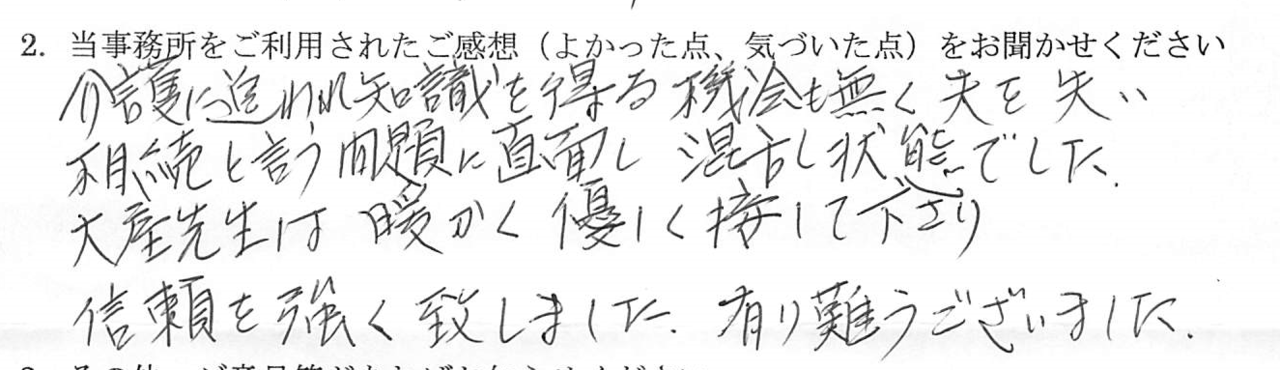 2. 当事務所をご利用されたご感想（よかった点、気づいた点）をお聞かせください
介護に追われ知識を得る機会も無く夫を失い
相続と言う問題に直面し 混乱し状態でした.
大産先生は 暖かく 優しく接して下さり
信頼を強く致しました. 有り難うございました.